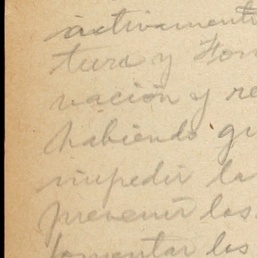 activament
tura y Fom
vación y re
habiendo qu
impedir la
prevenir los
fomentar los